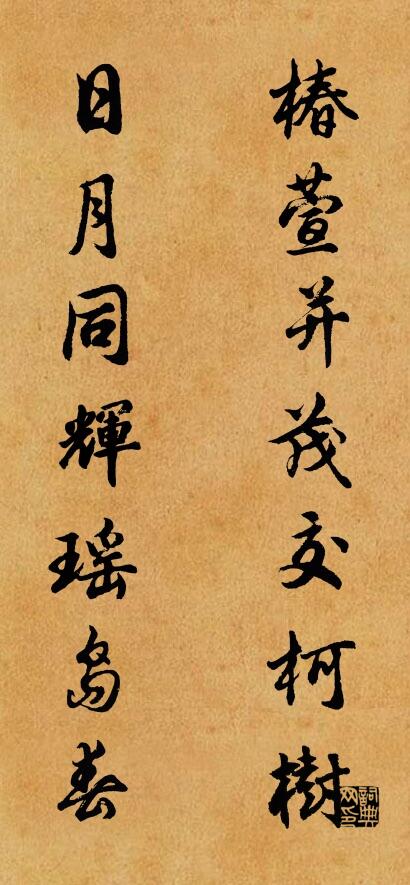 椿萱并茂交柯樹
日月同輝瑶島春
詞典网印